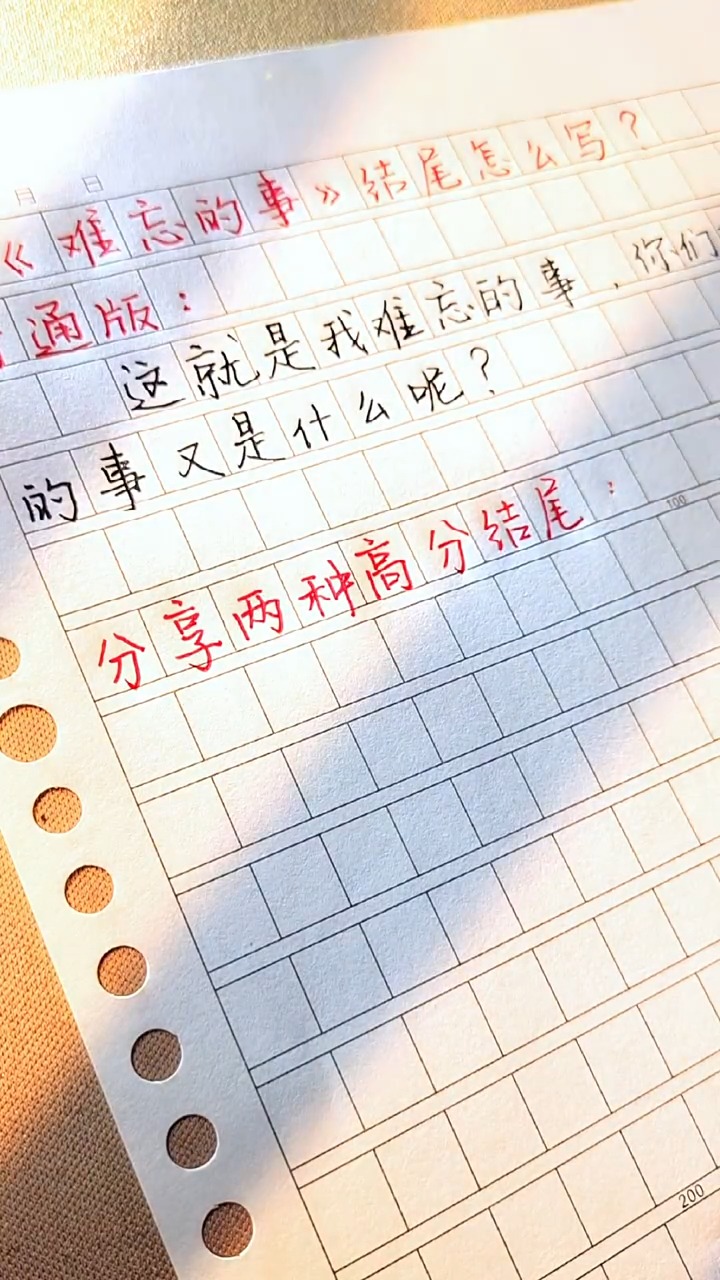 月 日
《难忘的事》结尾怎么写？
通版：
这就是我难忘的事，你们
的事又是什么呢？
100
分享两种高分结尾：
200